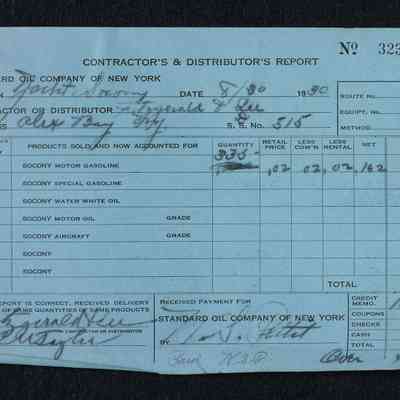 CONTRACTOR'S & DISTRIBUTOR'S REPORT
No 323
ARD OIL COMPANY OF NEW YORK
Yacht Socony DATE 8/30 1930
ROUTE No.
ACTOR OR DISTRIBUTOR Fitzgerald & Lee
EQUIPT. No.
SS Alex Bay NY S. S. No. 515
METHOD
PRODUCTS SOLD AND NOW ACCOUNTED FOR QUANTITY RETAIL PRICE LESS COM'N LESS RENTAL NET
SOCONY MOTOR GASOLINE 335 .02 02 .02 162
SOCONY SPECIAL GASOLINE
SOCONY WATER WHITE OIL
SOCONY MOTOR OIL GRADE
SOCONY AIRCRAFT GRADE
SOCONY
SOCONY
TOTAL
REPORT IS CORRECT, RECEIVED DELIVERY
OF SAME QUANTITIES OF SAME PRODUCTS
RECEIVED PAYMENT FOR
STANDARD OIL COMPANY OF NEW YORK
CREDIT MEMO.
COUPONS
CHECKS
CASH
TOTAL
Fitzgerald & Lee
OR DISTRIBUTOR
BY
Over